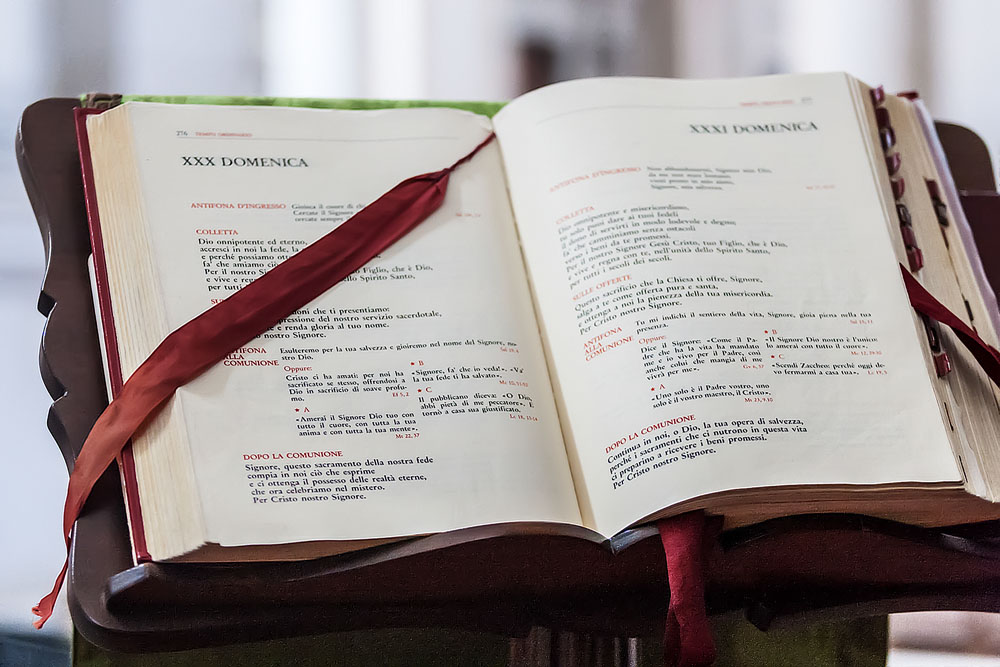 276 TEMPO ORDINARIO
XXX DOMENICA
ANTIFONA D'INGRESSO Gioisca il cuore di chi
Cercate il Signore
cercate sempre
COLLETTA
Dio onnipotente ed eterno,
accresci in noi la fede, la
e perché possiamo ottenere
fa' che amiamo ciò
Per il nostro Signore Figlio, che è Dio,
e vive e regna dello Spirito Santo,
per tutti
SU
doni che ti presentiamo:
espressione del nostro servizio sacerdotale,
e renda gloria al tuo nome.
nostro Signore.
ANTIFONA
ALLA
COMUNIONE
Esulteremo per la tua salvezza e gioiremo nel nome del Signore, no-
stro Dio.
Sal 19, 6
Oppure:
Cristo ci ha amati: per noi ha
sacrificato se stesso, offrendosi a
Dio in sacrificio di soave profu-
mo.
Ef 5, 2
★ A
«Amerai il Signore Dio tuo con
tutto il cuore, con tutta la tua
anima e con tutta la tua mente».
Mt 22, 37
★ B
«Signore, fa' che io veda!». «Va'
la tua fede ti ha salvato».
Mc 10, 51-52
★ C
Il pubblicano diceva: «O Dio,
abbi pietà di me peccatore». E
tornò a casa sua giustificato.
Lc 18, 13-14
DOPO LA COMUNIONE
Signore, questo sacramento della nostra fede
compia in noi ciò che esprime
e ci ottenga il possesso delle realtà eterne,
che ora celebriamo nel mistero.
Per Cristo nostro Signore.
XXXI DOMENICA
ANTIFONA D'INGRESSO Non abbandonarmi, Signore mio Dio,
da me non stare lontano;
vieni presto in mio aiuto,
Signore, mia salvezza.
COLLETTA
Dio onnipotente e misericordioso,
tu solo puoi dare ai tuoi fedeli
il dono di servirti in modo lodevole e degno;
fa' che camminiamo senza ostacoli
verso i beni da te promessi.
Per il nostro Signore Gesù Cristo, tuo Figlio, che è Dio,
e vive e regna con te, nell'unità dello Spirito Santo,
per tutti i secoli dei secoli.
SULLE OFFERTE
Questo sacrificio che la Chiesa ti offre, Signore,
salga a te come offerta pura e santa,
e ottenga a noi la pienezza della tua misericordia.
Per Cristo nostro Signore.
ANTIFONA
ALLA
COMUNIONE
Tu mi indichi il sentiero della vita, Signore, gioia piena nella tua
presenza.
Sal 15, 11
Oppure:
Dice il Signore: «Come il Pa-
dre che ha la vita ha mandato
me e io vivo per il Padre, così
anche colui che mangia di me
vivrà per me».
Gv 6, 57
★ A
«Uno solo è il Padre vostro, uno
solo è il vostro maestro, il Cristo».
Mt 23, 9.10
★ B
«Il Signore Dio nostro è l'unico:
lo amerai con tutto il cuore».
Mc 12, 29-30
★ C
«Scendi Zaccheo: perché oggi de-
vo fermarmi a casa tua».
Lc 19, 5
DOPO LA COMUNIONE
Continua in noi, o Dio, la tua opera di salvezza,
perché i sacramenti che ci nutrono in questa vita
ci preparino a ricevere i beni promessi.
Per Cristo nostro Signore.